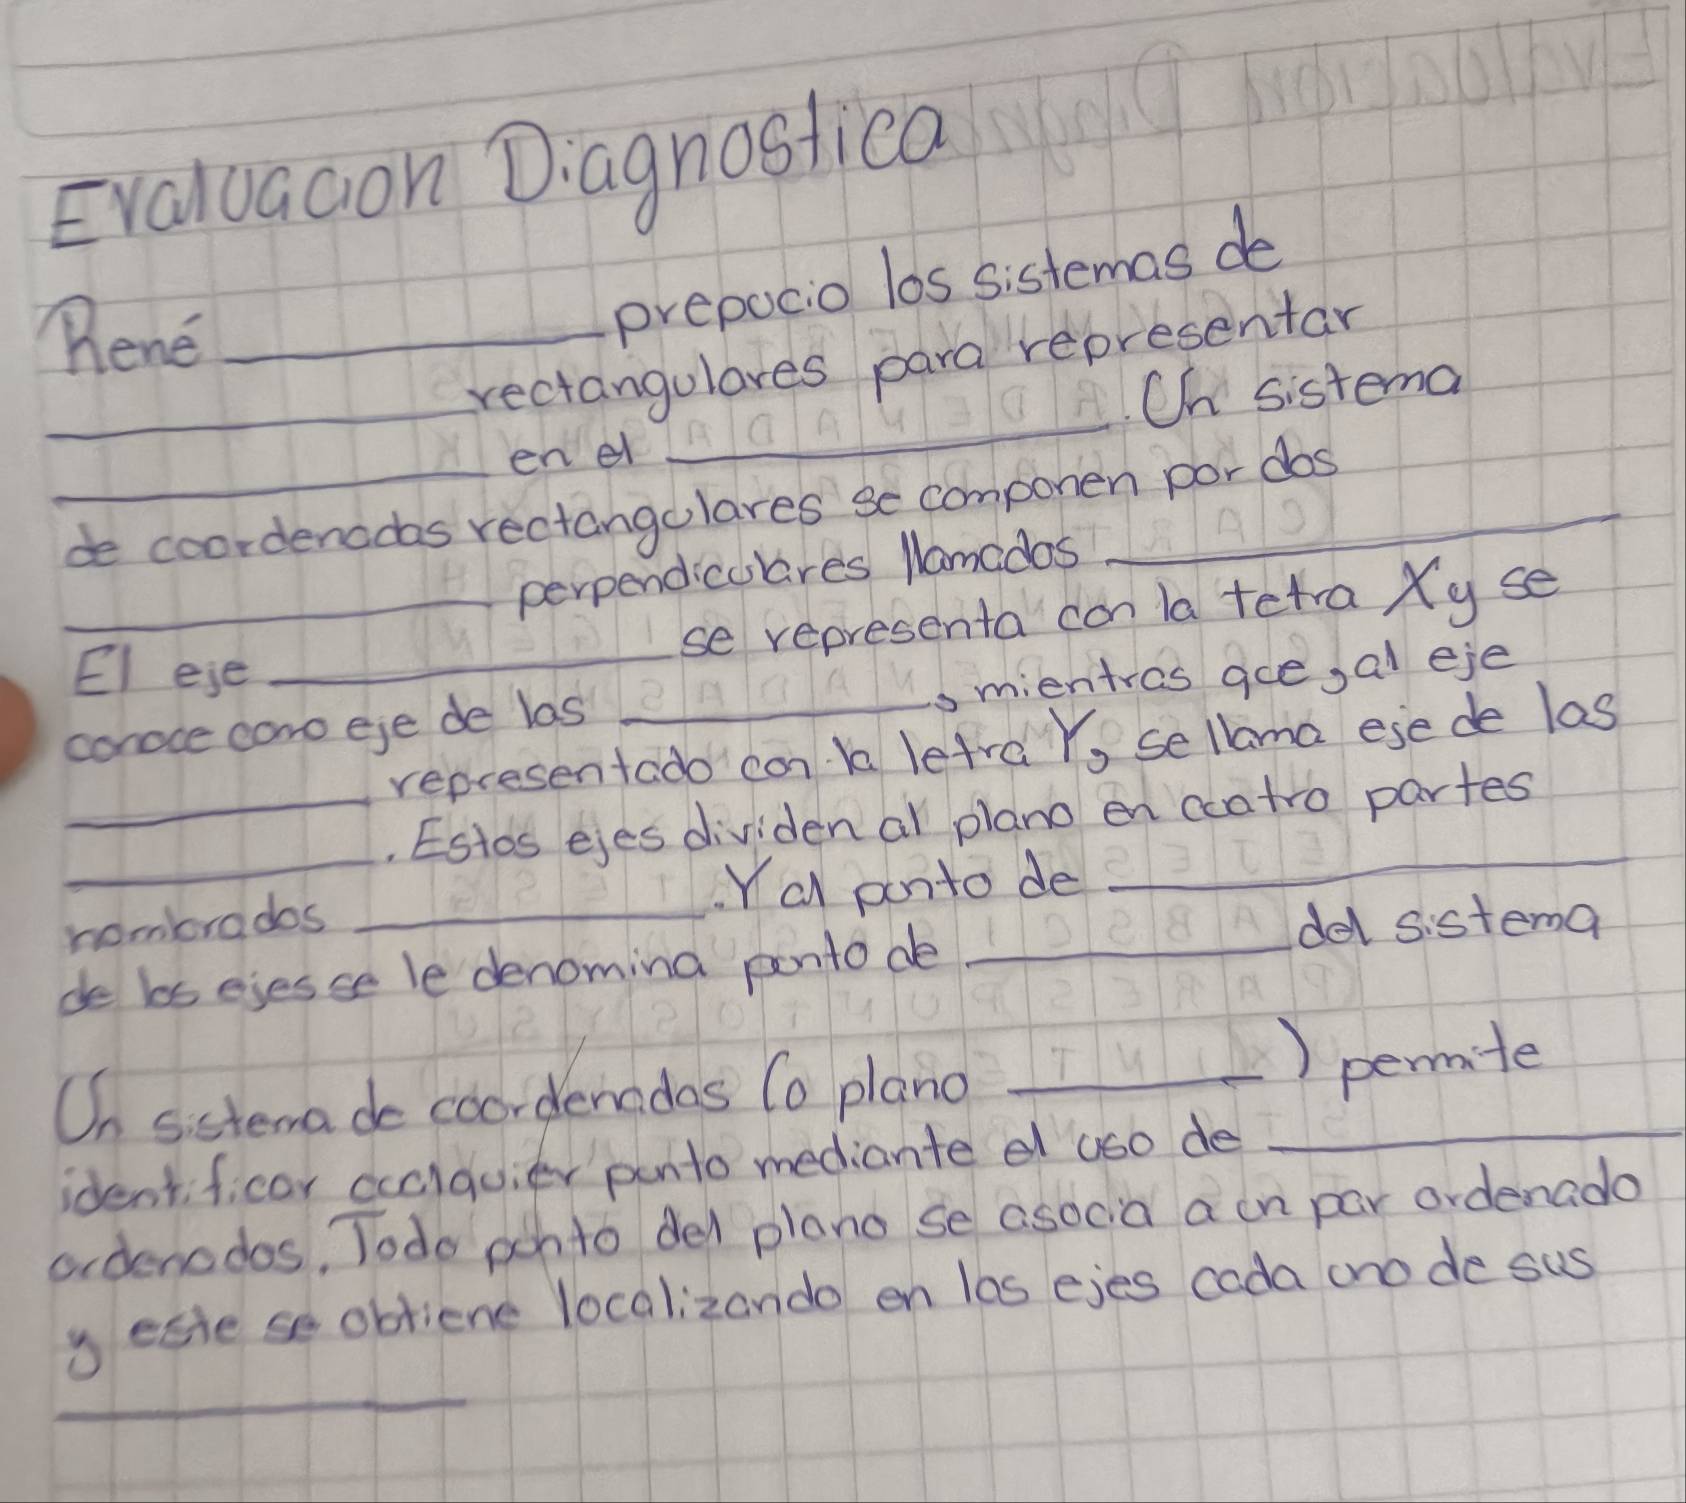 Evaluacion Diagnostica
René ____________ prepocio los sistemas de
____________ rectangulares para representar
____________ en el ____________. Un sistema
de coordenadas rectangulares se componen por dos
____________ perpendiculares llamados ____________
El eje ____________ se representa con la tetra X y se
conoce como eje de las ____________, mientras que, al eje
____________ representado con la letra Y, se llama eje de las
____________. Estos ejes dividen al plano en cuatro partes
nombrados ____________. Y al punto de ____________
de los ejes se le denomina punto de ____________ del sistema
Un sistema de coordenadas (o plano ____________) permite
identificar cualquier punto mediante el uso de ____________
ordenados. Todo punto del plano se asocia a un par ordenado
y este se obtiene localizando en los ejes cada uno de sus
____________